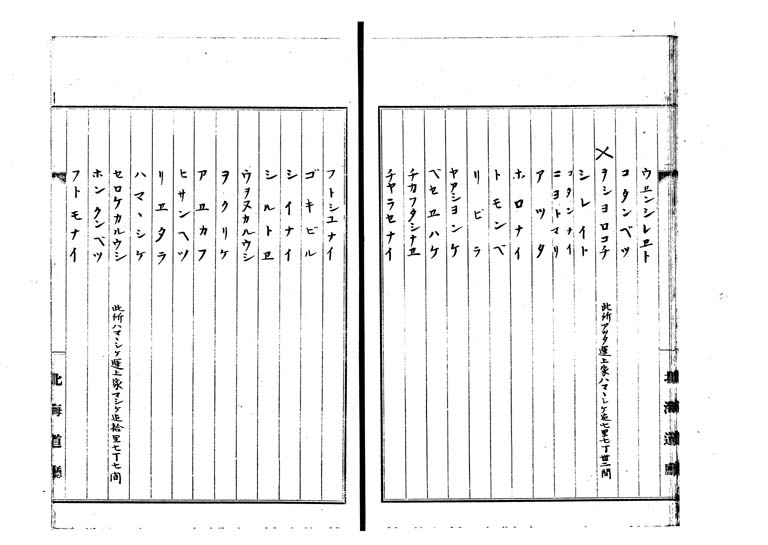 ウヱンシレヱト
コタンベツ
ヲシヨロコチ 此所アツタ運上家ハマヽシケ迄七里七丁卅二間
シレイト
コタンナイ
ニヨトマリ
アツタ
ホロナイ
トモンベ
リビラ
ヤアシヨンケ
ベセヱハケ
チカフタシナヱ
チヤラセナイ
北海道廳
フトシユナイ
ゴキビル
シイナイ
シルトヱ
ウヲヌカルウシ
ヲクリケ
アヱカフ
ヒサンヘツ
リヱタラ
ハマヽシケ
セロケカルウシ 此所ハマヽシケ運上家マシケ迄拾里七丁七間
ホンクンベツ
フトモナイ
北海道廳